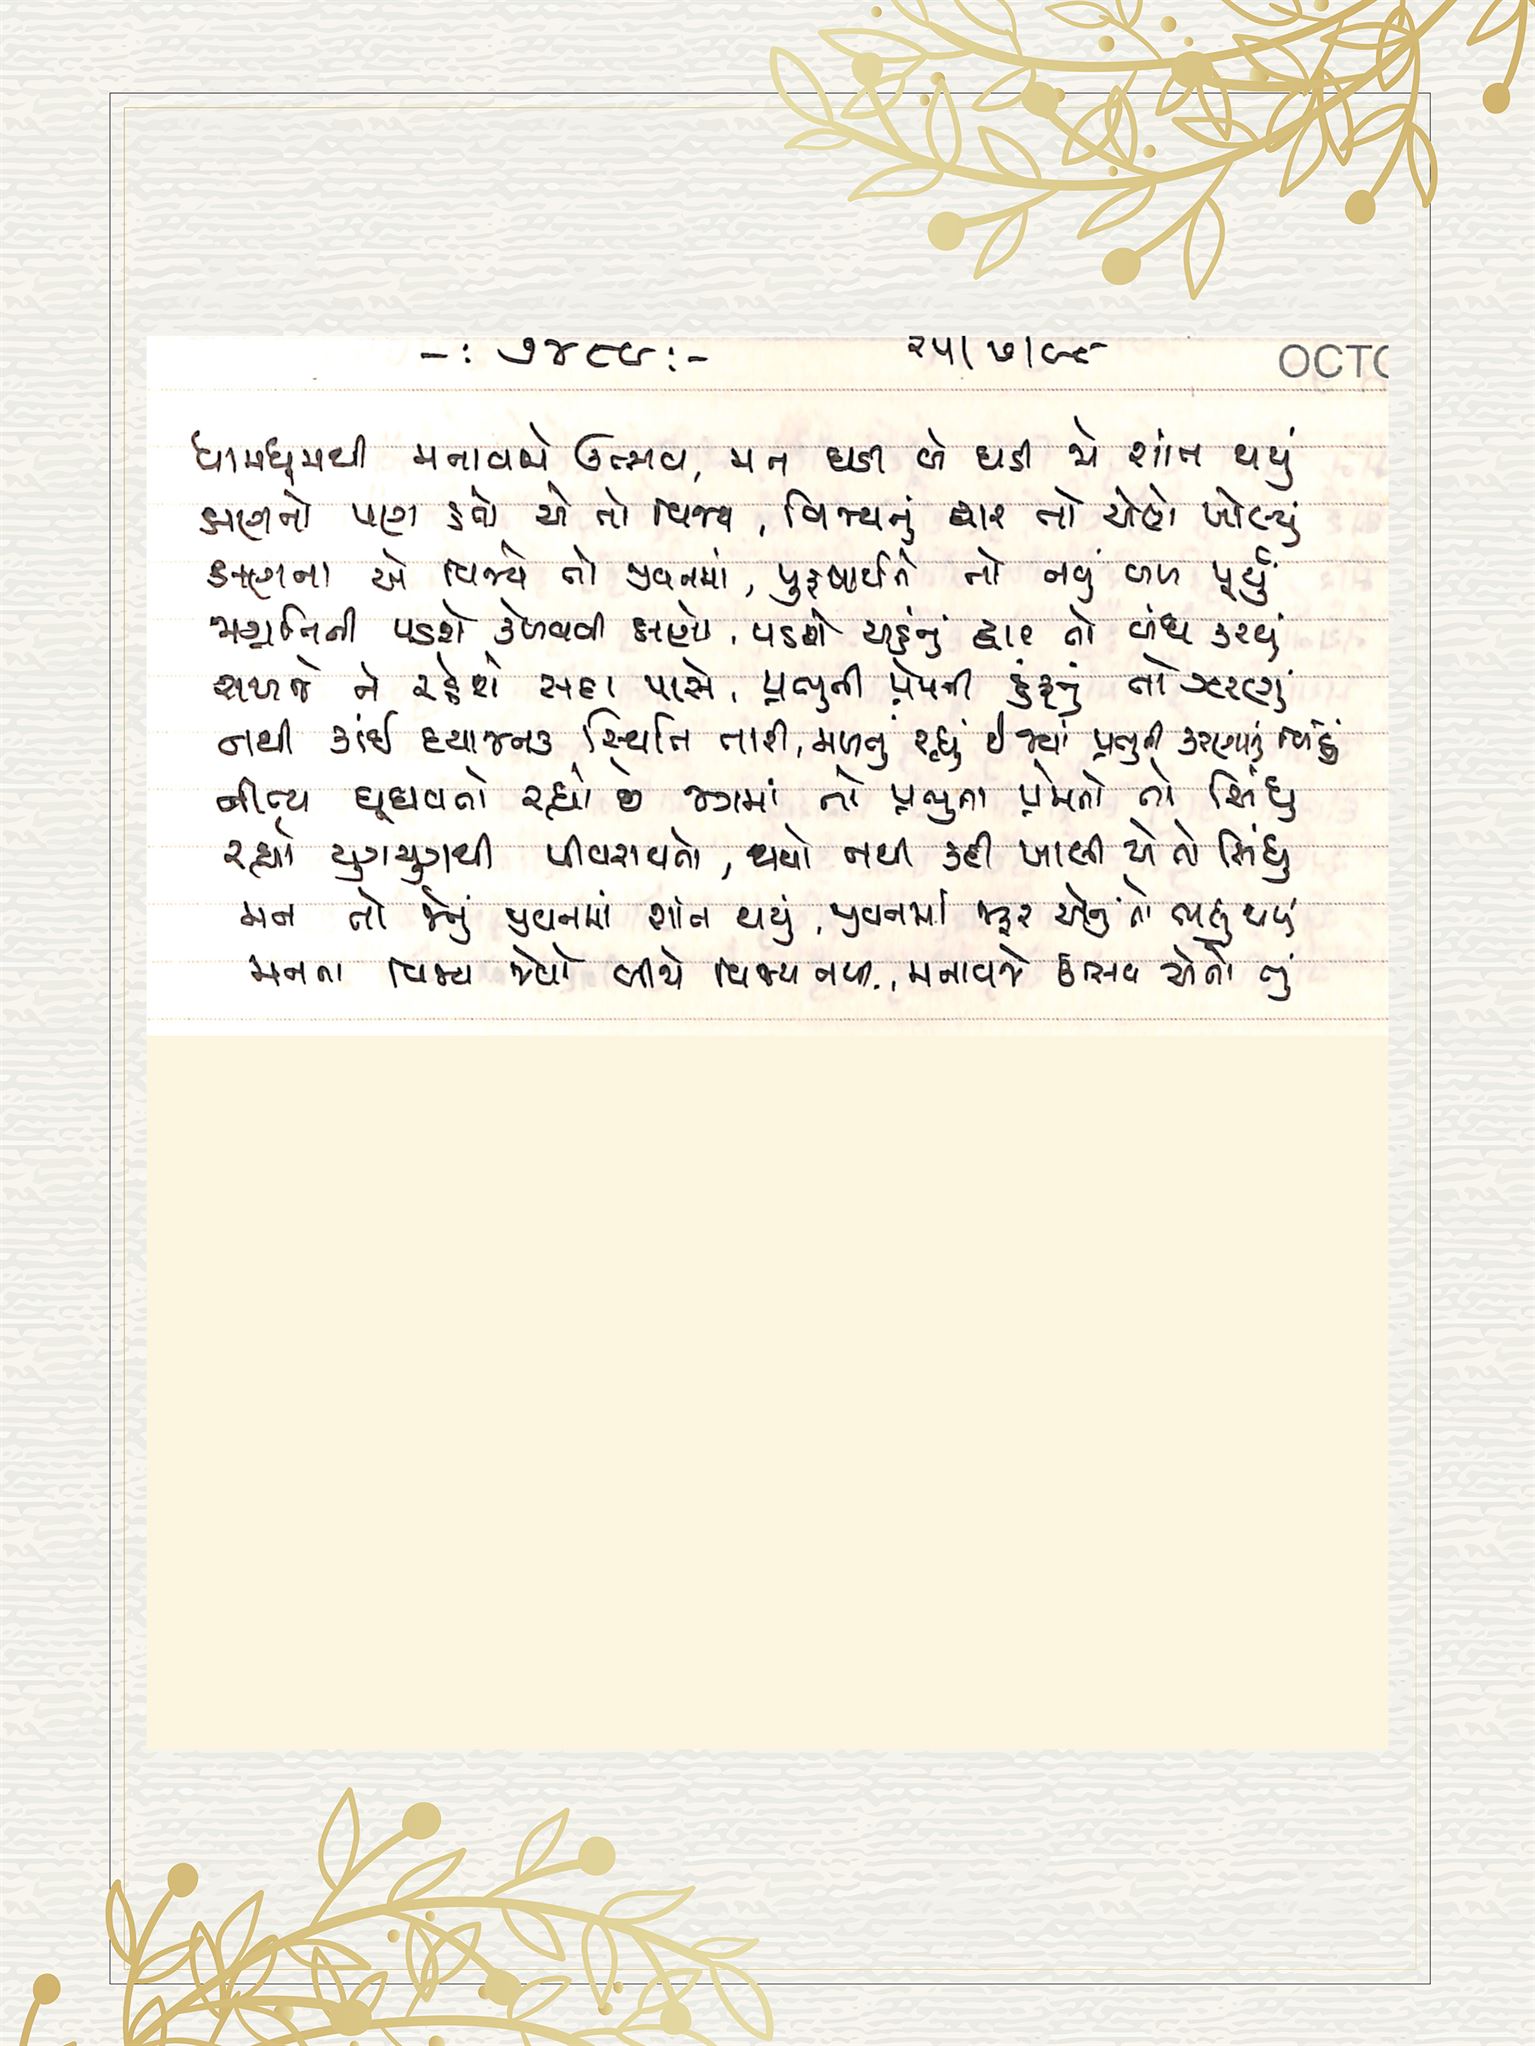 -: ૭૪૮૬ :- ૨૫/૭/૯૯ OCTO
ધામધૂમથી મનાવજે ઉત્સવ, મન ઘડી બે ઘડી જો શાંત થયું
ક્ષણનો પણ હતો એ તો વિજય, વિજયનું દ્વાર તો એણે ખોલ્યું
ક્ષણના એ વિજયે તો જીવનમાં, પુરુષાર્થને તો નવું બળ પૂર્યું
જાગૃતિની પડશે કેળવવી ક્ષણો, પડશે અહંનું દ્વાર તો બંધ કરવું
રાખજે ને રહેશે સદા પાસે, પ્રભુની પ્રેમની હૂંફનું તો ઝરણું
નથી કાંઈ દયાજનક સ્થિતિ તારી, મળતું રહ્યું છે જ્યાં પ્રભુની કરુણાનું બિંદુ
નીત્ય ઘૂઘવતો રહ્યો છે જગમાં તો પ્રભુના પ્રેમનો તો સિંધુ
રહ્યો યુગયુગથી પીવરાવતો, થયો નથી કદી ખાલી એ તો સિંધુ
મન તો જેનું જીવનમાં શાંત થયું, જીવનમાં જરૂર એનું તો ભલું થયું
મનના વિજય જેવો બીજો વિજય નથી, મનાવજે ઉત્સવ એનો તું